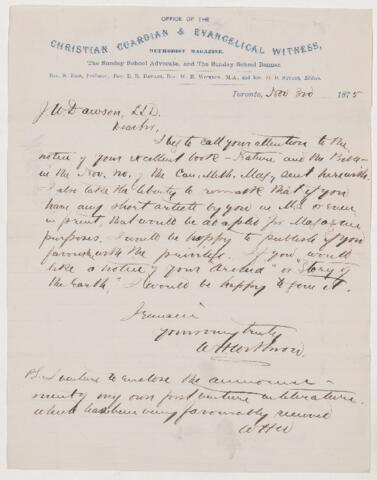 OFFICE OF THE
CHRISTIAN GUARDIAN & EVANGELICAL WITNESS,
METHODIST MAGAZINE,
The Sunday School Advocate, and The Sunday School Banner.
Rev. S. Rose, Publisher, Rev. E. H. Dewart, Rev. W. H. Withrow, M.A., and Rev. Editors.
Toronto, Nov 3rd 1875
J W Dawson, LL.D.
Dear Sir,
I beg to call your attention to the
notice of your excellent book - Nature and the Bible -
in the Nov. no. of the Can. Meth. Mag, sent herewith.
I also take the liberty to remark that if you
have any short article by you in M.S. or even
in print, that would be adapted for Magazine
purposes, I would be happy to publish if you
favour with the privilege. If you would
like a notice of your "Archaia" or "Story of
the Earth," I would be happy to give it.
I remain
yours very truly
W H Withrow
P.S. I venture to enclose the announce-
ment of my own first venture in literature,
which has been very favourably received
W H W